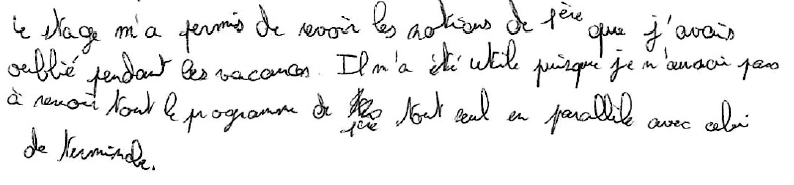 Le stage m'a permis de revoir les notions de 1ère que j'avais
oublié pendant les vacances. Il m'a été utile puisque je n'aurai pas
à revoir tout le programme de 1ère tout seul en parallèle avec celui
de terminale.